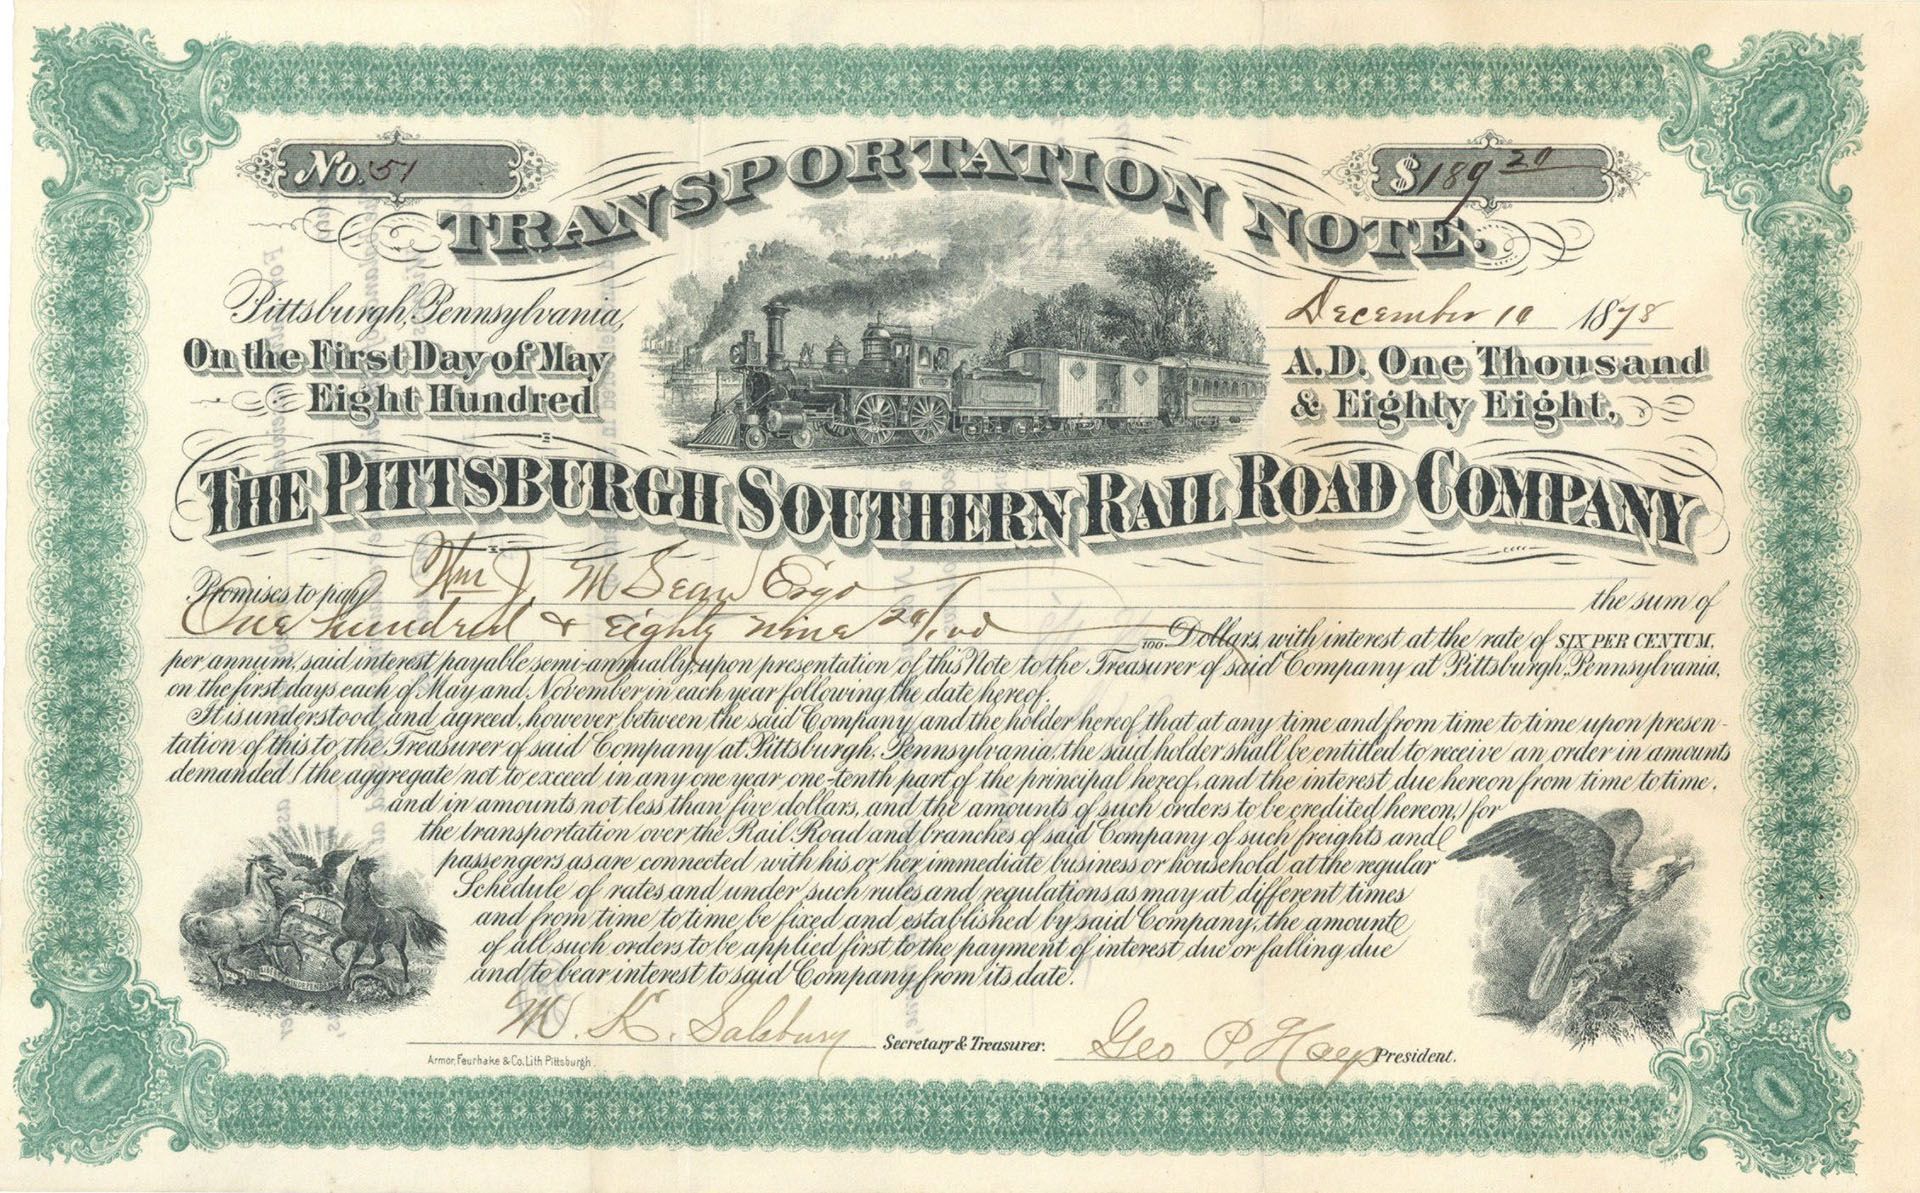 No. 51
$189 20
TRANSPORTATION NOTE.
Pittsburgh, Pennsylvania, December 10 1878
On the First Day of May A.D. One Thousand
Eight Hundred & Eighty Eight,
THE PITTSBURGH SOUTHERN RAIL ROAD COMPANY
Promises to pay Wm J. the sum of
One hundred & Eighty nine 20/100 /100 Dollars, with interest at the rate of SIX PER CENTUM,
per annum, said interest payable semi-annually, upon presentation of this Note to the Treasurer of said Company at Pittsburgh, Pennsylvania,
on the first days each of May and November in each year following the date hereof.
It is understood and agreed, however, between the said Company and the holder hereof that at any time and from time to time upon presen-
tation of this to the Treasurer of said Company at Pittsburgh, Pennsylvania, the said holder shall be entitled to receive an order in amounts
demanded (the aggregate not to exceed in any one year one-tenth part of the principal hereof, and the interest due hereon from time to time,
and in amounts not less than five dollars, and the amounts of such orders to be credited hereon,) for
the transportation over the Rail Road and branches of said Company of such freights and
passengers as are connected with his or her immediate business or household at the regular
Schedule of rates and under such rules and regulations as may at different times
and from time to time be fixed and established by said Company, the amount
of all such orders to be applied first to the payment of interest due or falling due
and to bear interest to said Company from its date.
M. K. Salsbury Secretary & Treasurer. Geo P. Hays President.
Armor, Feurhake & Co. Lith Pittsburgh.